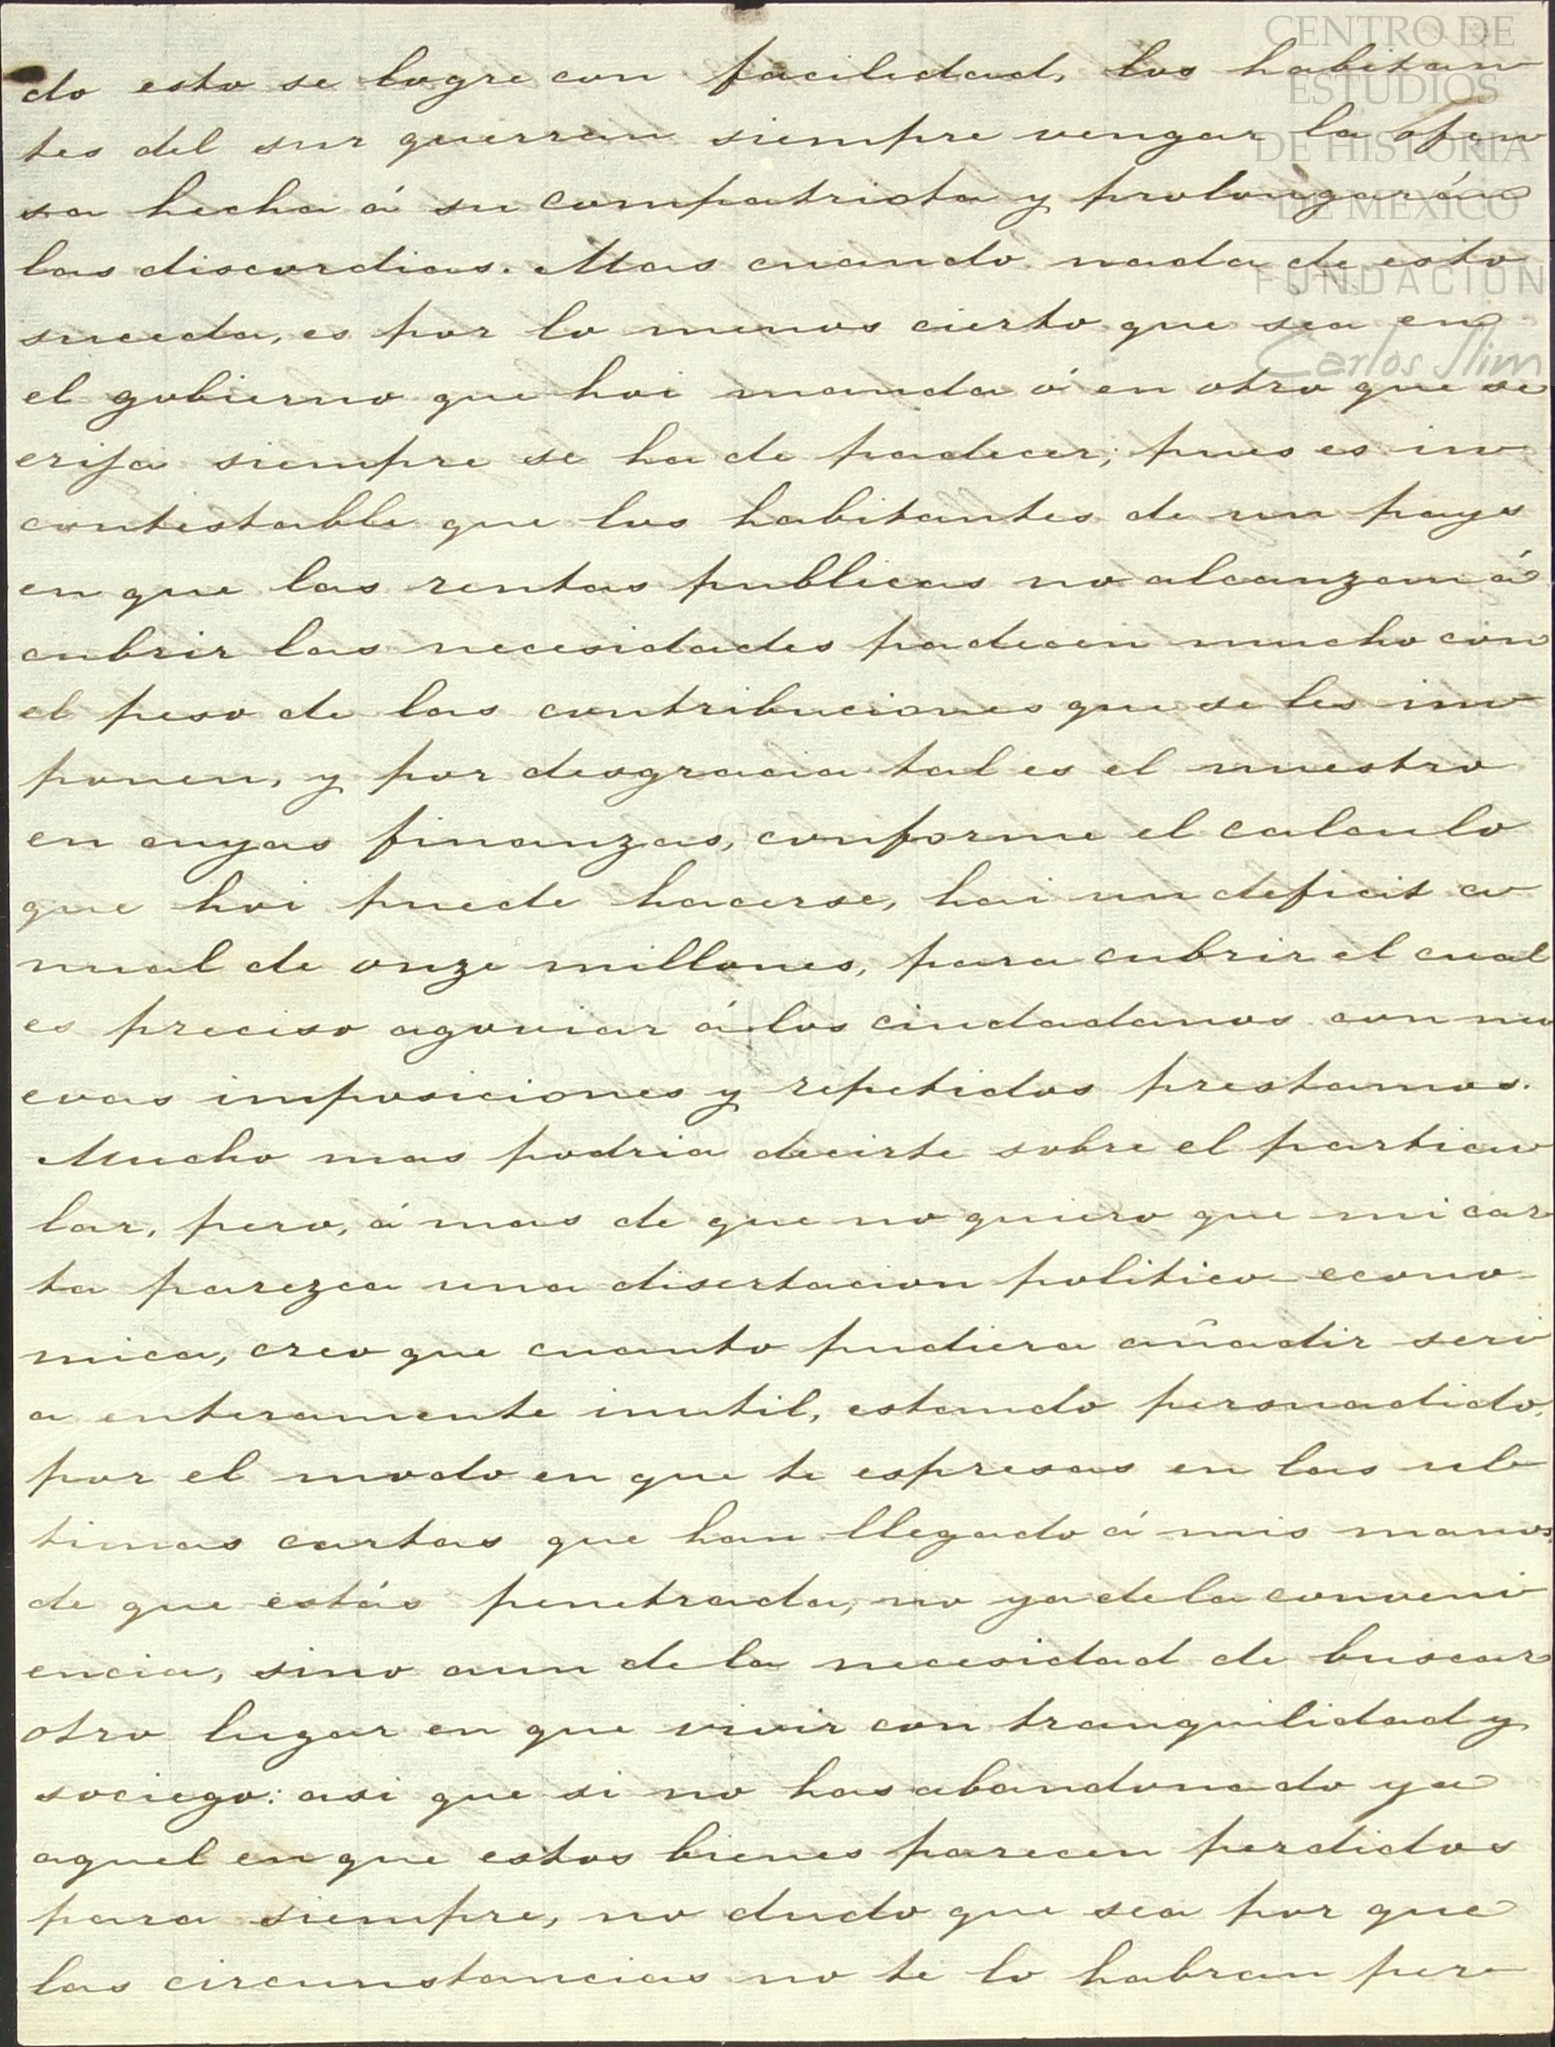 CENTRO DE
ESTUDIOS
DE HISTORIA
DE MÉXICO
FUNDACIÓN
Carlos Slim
do esto se logre con facilidad, los habitan
tes del sur querran siempre vengar la ofen
sa hecha á su compatriota y prolongarán
las discordias. Mas cuando nada de esto
suceda, es por lo menos cierto que sea en
el gobierno que hoi manda ó en otro que se
erija siempre se ha de padecer; pues es in
contestable que los habitantes de un pays
en que las rentas publicas no alcanzan á
cubrir las necesidades padecen mucho con
el peso de las contribuciones que se les im
ponen, y por desgracia tal es el nuestro
en cuyas finanzas, conforme el calculo
que hoi puede hacerse, hai un deficit a
nual de onze millones, para cubrir el cual
es preciso agoviar á los ciudadanos con nu
evas imposiciones y repetidos prestamos.
Mucho mas podria decirte sobre el particu
lar, pero, á mas de que no quiero que mi car
ta parezca una disertacion politico-econo-
mica, creo que cuanto pudiera añadir seri
a enteramente inutil, estando persuadido,
por el modo en que te espresas en las ul
timas cartas que han llegado á mis manos,
de que estás penetrada, no ya de la conveni
encia, sino aun de la necesidad de buscar
otro lugar en que vivir con tranquilidad y
sociego: asi que si no has abandonado ya
aquel en que estos bienes parecen perdidos
para siempre, no dudo que sea por que
las circunstancias no te lo habran per